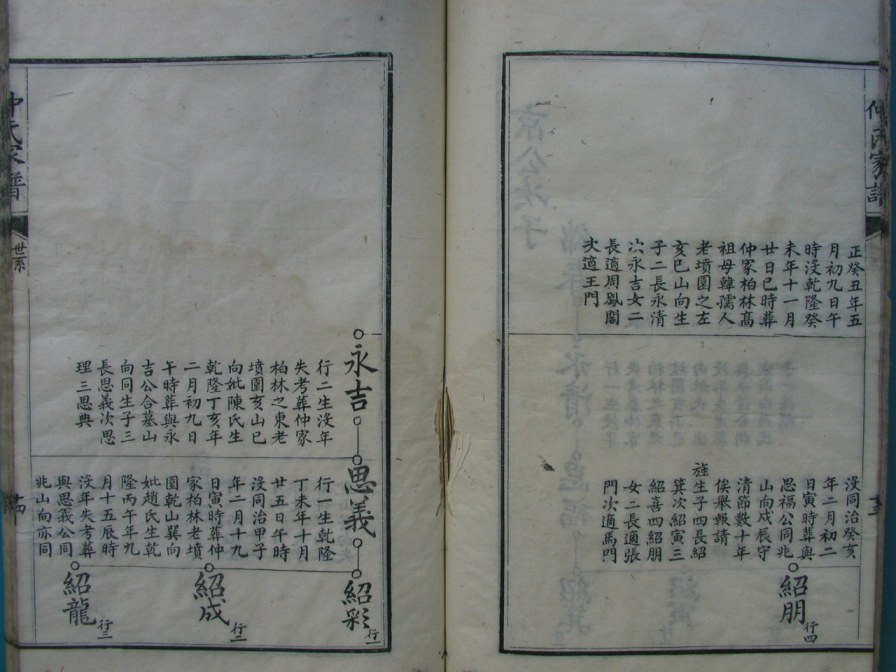 仲氏家譜
正癸丑年五
月初九日午
時沒乾隆癸
未年十一月
廿日巳時葬
仲冢柏林高
祖母韓孺人
老墳圍之左
亥巳山向生
子二長永清
次永吉女二
長適周
次適王門
沒同治癸亥
年二月初二
日寅時葬與
思福公同兆
山向戍辰守
清節數十年
俟舉報請
旌生子四長紹
箕次紹寅三
紹喜四紹朋
女二長適張
門次適馬門
紹朋 行四
永吉
行二生沒年
失考葬仲家
柏林之東老
墳圍亥山巳
向妣陳氏生
乾隆丁亥年
二月初九日
午時葬與永
吉公合墓山
向同生子三
長思義次思
理三思典
思義
行一生乾隆
丁未年十月
廿五日午時
沒同治甲子
年二月十九
日寅時葬仲
家柏林老墳
圍乾山巽向
妣趙氏生乾
隆丙午年九
月十五辰時
沒年失考葬
與思義公同
兆山向亦同
紹彩 行一
紹成 行二
紹龍 行三
仲氏家譜
世系